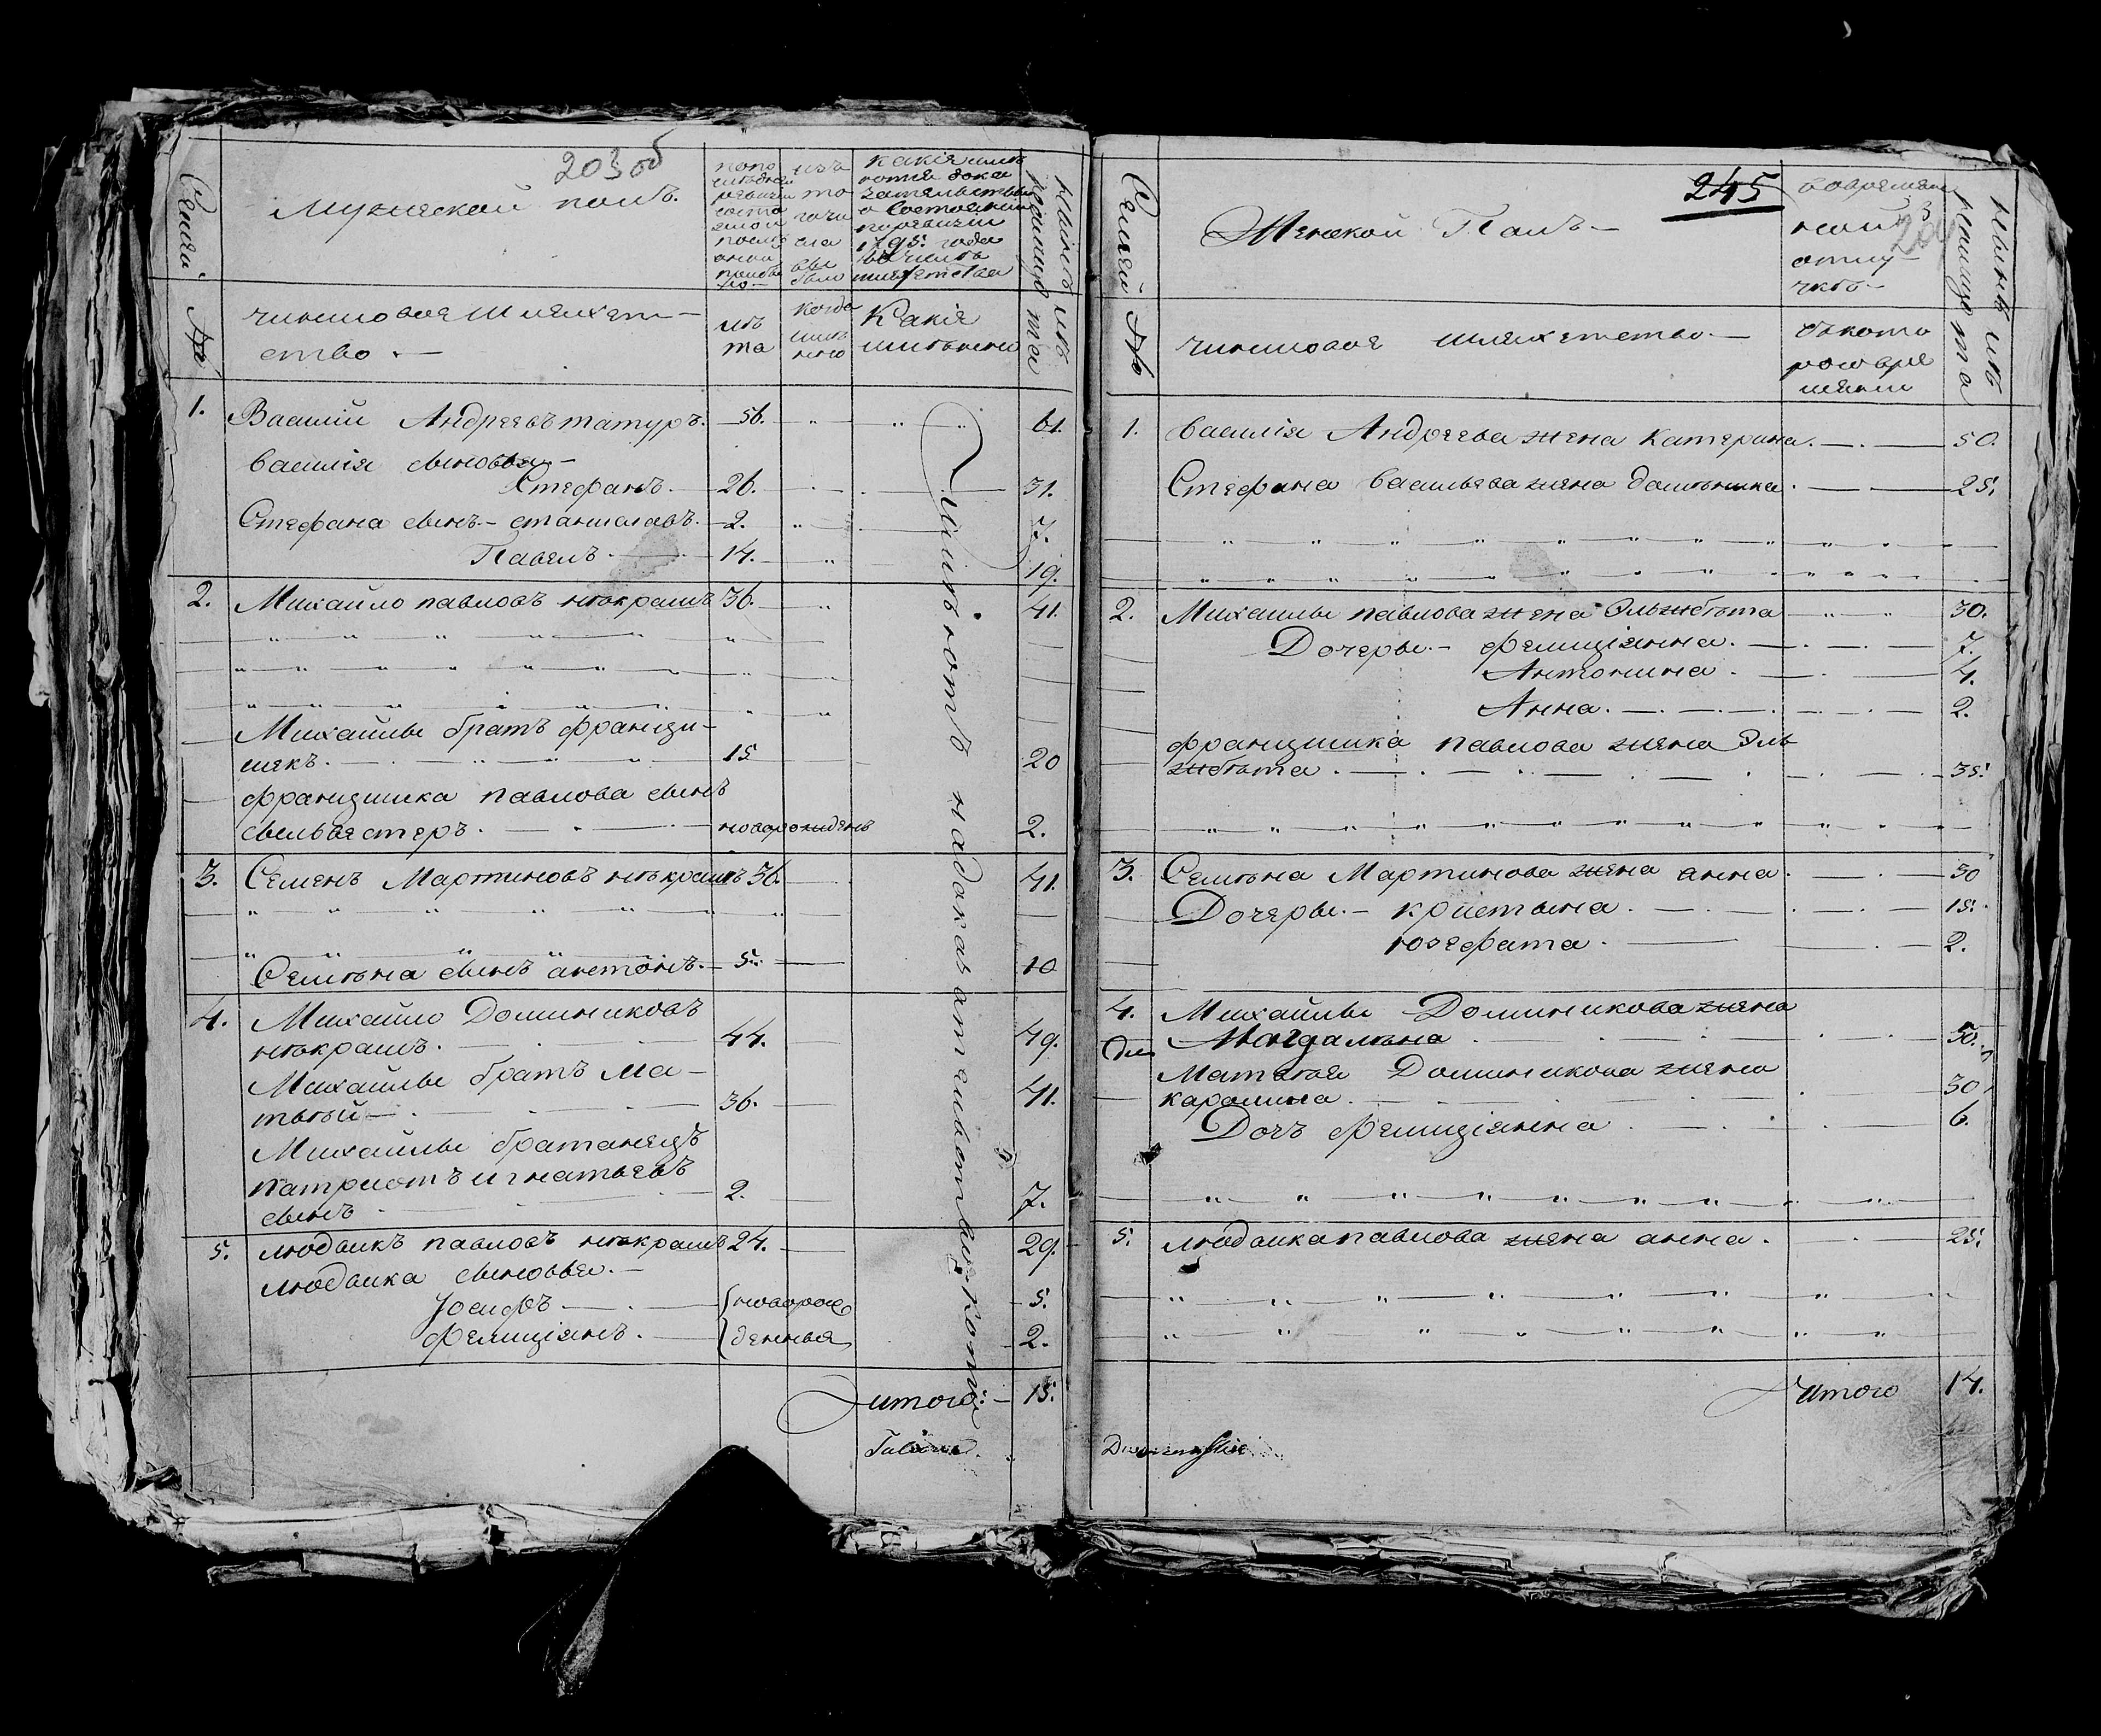 203 об
Семьи
№
Мужеской полъ.
попо
следней
ревизии
состо
яло и
после
оной
прибы
ло
изъ
то
го чи
сла
вы
было
какія име
ются дока
зательствы
о состоянии
по ревизіи
1795: года
въ числе
шляхетства
ныне на лицо
чиншовое шляхет-
ство.
лѣ
та
когда
имъ
какія
имянны
лѣ
та
1. Василій Андреевъ татуръ. 56. 61.
Василія сыновья
Стефанъ. 26. 31.
Стефана сынъ - станиславъ. 2. 7.
Павелъ. 14. 19.
2. Михайло павловъ нѣкрашъ 36. 41.
Михайлы братъ францы-
шекъ. 15 20
францишка павлова сынъ
сыльвестеръ. новорожденъ 2.
3. Семенъ Мартиновъ нѣкрашъ 36. 41.
Семѣна сынъ антонъ. 5. 10
4. Михайло Доминиковъ
нѣкрашъ. 44. 49.
Михайлы братъ Ма-
тѣй 36. 41.
Михайлы братанецъ
катриотъ игнатьевъ
сынъ 2. 7.
5. людвикъ павловъ нѣкрашъ 24. 29.
людвика сыновья.
Іосифъ новорож 5.
Фелиціянъ. денныя 2.
итого: 15.
245
Семей
№
Женской Полъ
вовремян
ной
отлу-
чкѣ
ныне на лицо
чиншовое шляхетство.
съ кото
рого вре
мяни
лѣ
та
1. Василія Андреева жена Катерина. 50.
Стефана Васильева жена Доминика. 25.
2. Михайлы павлова жена Эльжбѣта 30.
Дочеры - фелиціянна. 7.
Антонина. 4.
Анна. 2.
францишка павлова жена Эль
жбѣта. 35.
3. Семѣна Мартинова жена анна. 30
Дочеры - крістына. 15.
юзефата. 2.
4. Михайлы Доминикова жена
Магдалѣна 50.
Матѣя Доминикова жена
каролина. 30
Дочъ фелиціянна 6.
5. людвика павлова жена анна. 25.
итого 14.